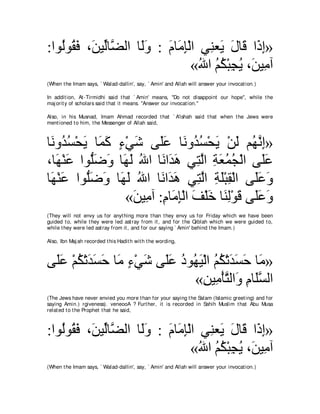 «إِذَا قَالَ يَعْنِي الْإِمَامَ : وَلَا الضَّالِّينَ، فَقُولُوا:
آمِينَ، يُجِبْكُمُ اللهُ»
(When the Imam says, `Walad-dallin', say, `Amin' and Allah will answer your invocation.)
In addition, At-Tirmidhi said that `Amin' means, "Do not disappoint our hope", while the
majority of scholars said that it means. "Answer our invocation."
Also, in his Musnad, Imam Ahmad recorded that `A'ishah said that when the Jews were
mentioned to him, the Messenger of Allah said,
«إِنَّهُمْ لَنْ يَحْسُدُونَا عَلَى شَيْءٍ كَمَا يَحْسُدُونَا
عَلَى الْجُمُعَةِ الَّتِي هَدَانَا اللهُ لَهَا وَضَلُّوا عَنْهَا،
وَعَلَى الْقِبْلَةِ الَّتِي هَدَانَا اللهُ لَهَا وَضَلُّوا عَنْهَا
وَعَلَى قَوْلِنَا خَلْفَ الْإِمَامِ: آمِينَ»
(They will not envy us for anything more than they envy us for Friday which we have been
guided to, while they were led astray from it, and for the Qiblah which we were guided to,
while they were led astray from it, and for our saying `Amin' behind the Imam.)
Also, Ibn Majah recorded this Hadith with the wording,
«مَا حَسَدَتْكُمُ الْيَهُودُ عَلَى شَيْءٍ مَا حَسَدَتْكُمْ عَلَى
السَّلَامِ وَالتَّأْمِينِ»
(The Jews have never envied you more than for your saying the Salam (Islamic greeting) and for
saying Amin.) rgiveness). veneooA ? Further, it is recorded in Sahih Muslim that Abu Musa
related to the Prophet that he said,
«إِذَا قَالَ يَعْنِي الْإِمَامَ : وَلَا الضَّالِّينَ، فَقُولُوا:
آمِينَ، يُجِبْكُمُ اللهُ»
(When the Imam says, `Walad-dallin', say, `Amin' and Allah will answer your invocation.)